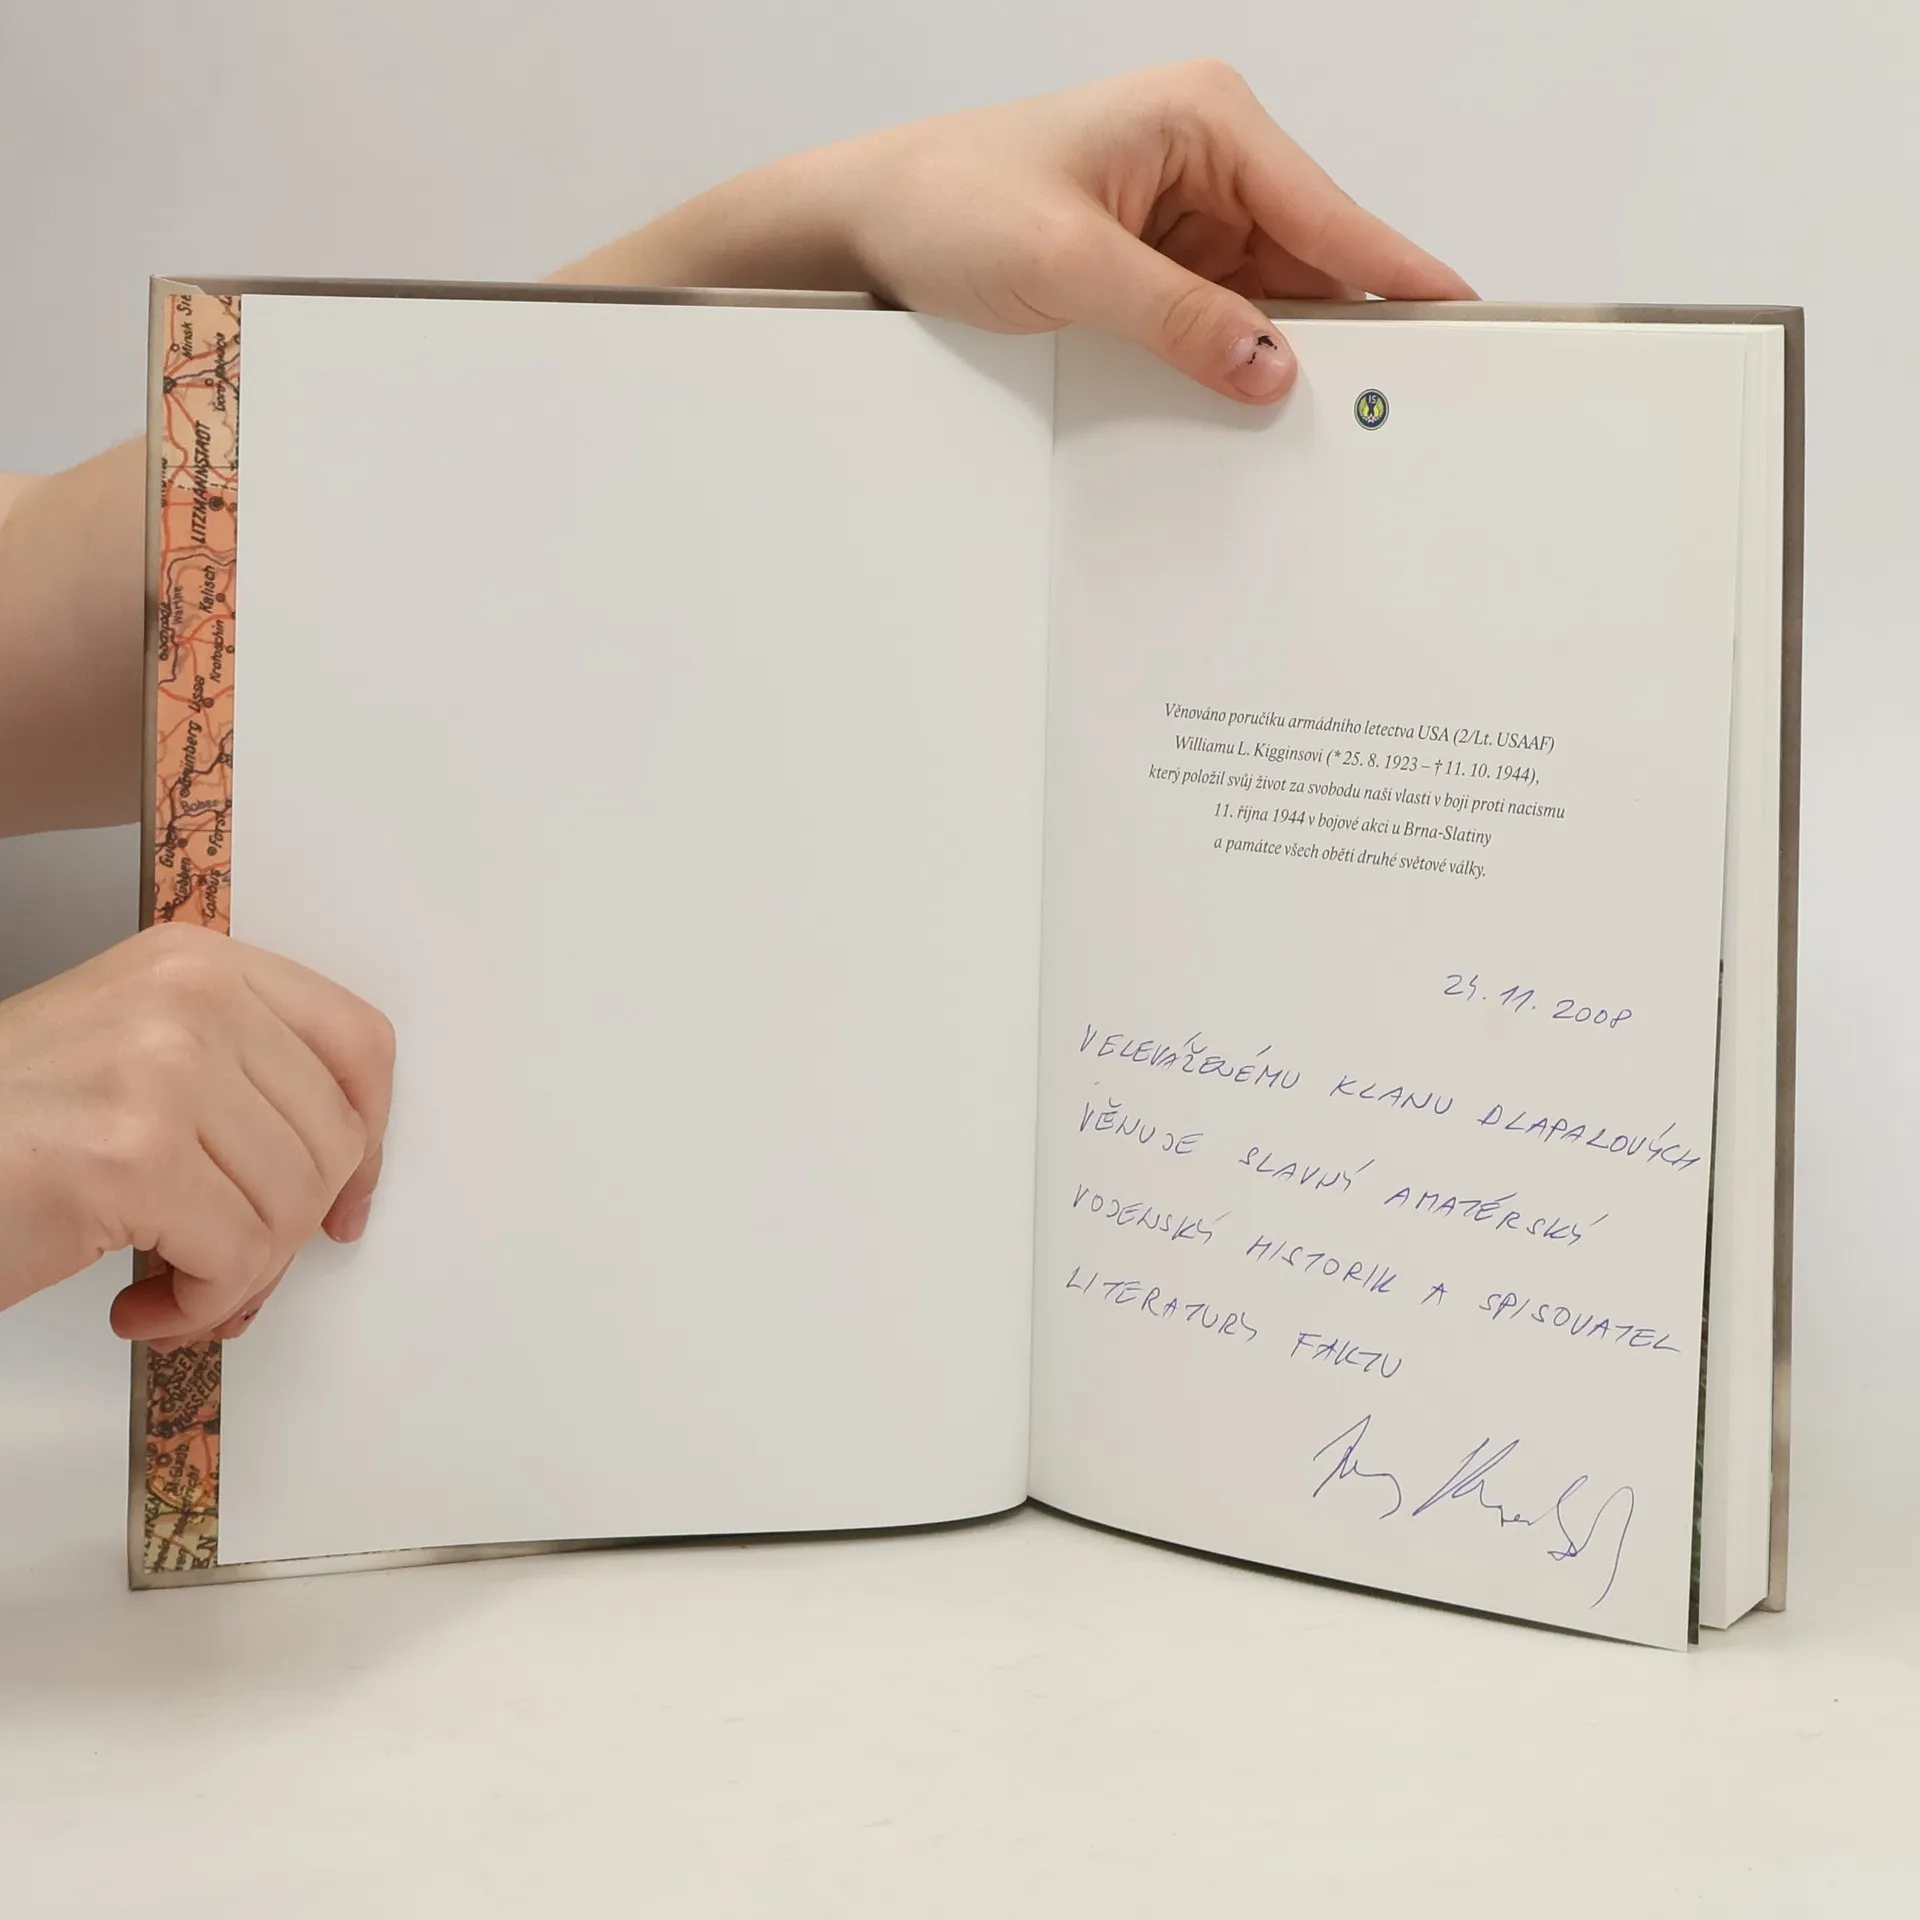 Minsk
LITZMANNSTADT
Warthe
Kalisch
Krotoschin
Lissa
Grünberg
Forst
Guben
Lübben
Cottbus
15
Věnováno poručíku armádního letectva USA (2/Lt. USAAF)
Williamu L. Kigginsovi (* 25. 8. 1923 – † 11. 10. 1944),
který položil svůj život za svobodu naší vlasti v boji proti nacismu
11. října 1944 v bojové akci u Brna-Slatiny
a památce všech obětí druhé světové války.
24. 11. 2008
VELEVÁŽENÉMU KLANU DLAPALOVÝCH
VĚNUJE SLAVNÝ AMATÉRSKÝ
VOJENSKÝ HISTORIK A SPISOVATEL
LITERATURY FAKTU